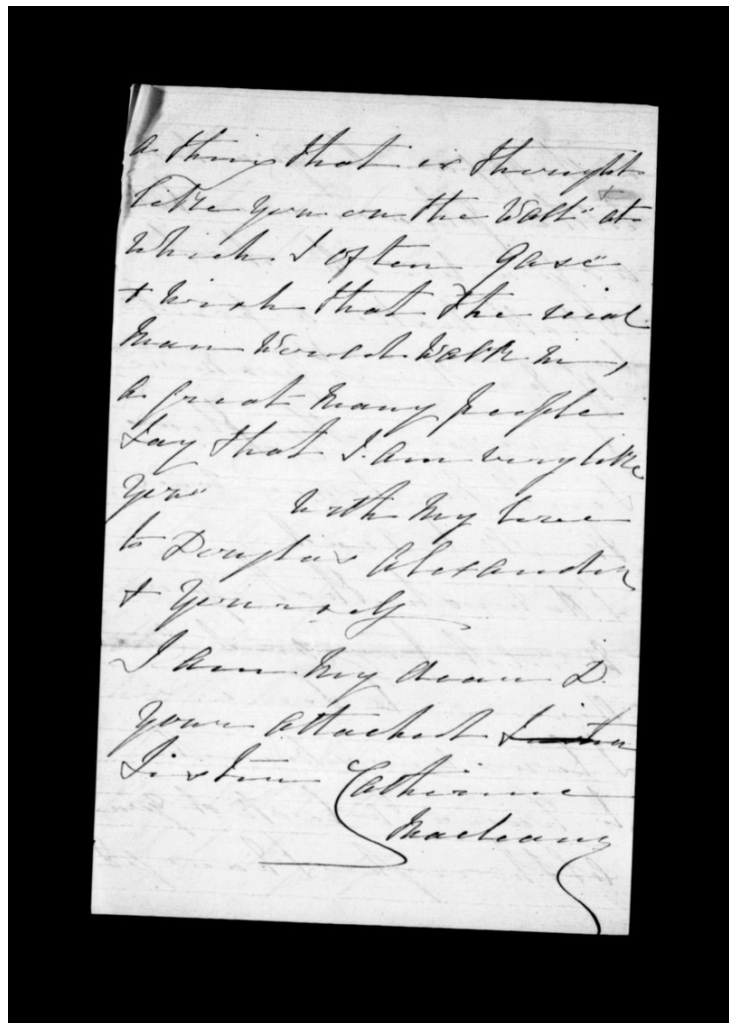 a thing that is thought
like you on the Wall" at
which I often gase"
+ wish that the real
man would walk in,
a great many people
say that I am very like
you" with my love
to Douglas Alexander
+ yourself
I am my dear D.
your attached Sister
Sister Catherine
Macleans